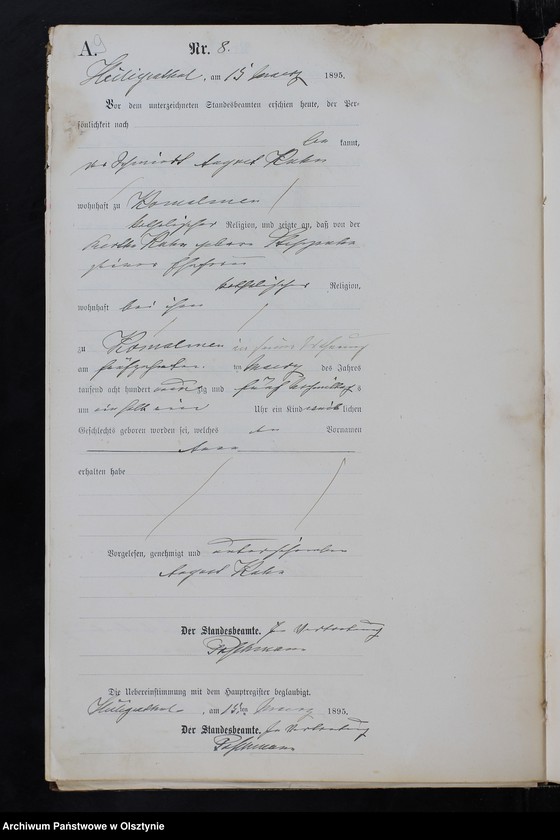 A.
Nr. 8.
Heiligenthal, am 15 Maerz 1895.
Vor dem unterzeichneten Standesbeamten erschien heute, der Per-
sönlichkeit nach
be kannt,
der Schmiedt August Kuhn
wohnhaft zu Komalmen
katholischer Religion, und zeigte an, daß von der
Kuhn geborn
seiner Ehefrau
katholischer Religion,
wohnhaft bei ihm
zu Komalmen in seiner Wohnung
am fünfzehnten ten Maerz des Jahres
tausend acht hundert neun zig und fünf Vormittags
um ein halb ein Uhr ein Kind weib lichen
Geschlechts geboren worden sei, welches den Vornamen
Anna
erhalten habe
Vorgelesen, genehmigt und unterschrieben
August Kuhn
Der Standesbeamte. In Vertretung
Die Uebereinstimmung mit dem Hauptregister beglaubigt.
Heiligenthal, am 15 ten Maerz 1895.
Der Standesbeamte. In Vertretung
Archiwum Państwowe w Olsztynie